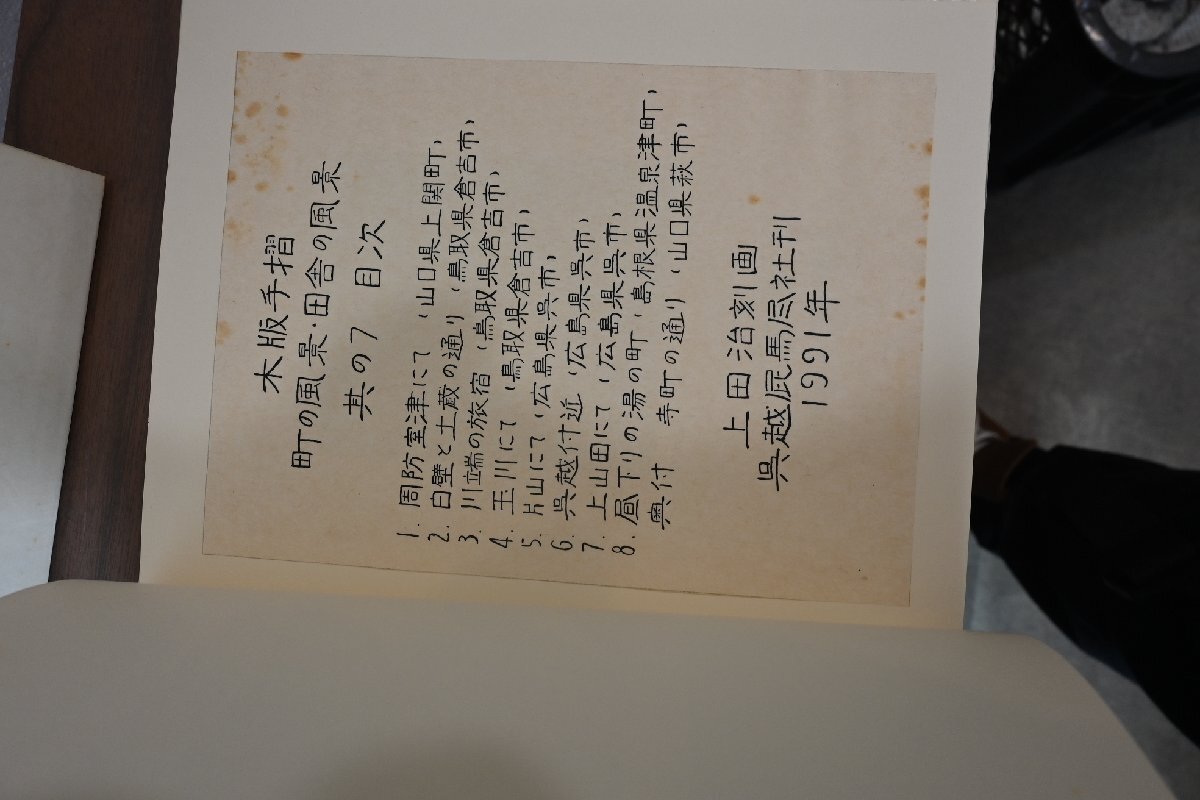 木版手摺
町の風景・田舎の風景
其の7 目次
1. 周防室津にて (山口県上関町)
2. 白壁と土蔵の通り (鳥取県倉吉市)
3. 川端の旅宿 (鳥取県倉吉市)
4. 玉川にて (鳥取県倉吉市)
5. 片山にて (広島県呉市)
6. 呉越付近 (広島県呉市)
7. 上山田にて (広島県呉市)
8. 昼下りの湯の町 (島根県温泉津町)
奥付 寺町の通り (山口県萩市)
上田治刻画
呉越屁馬尽社刊
1991年